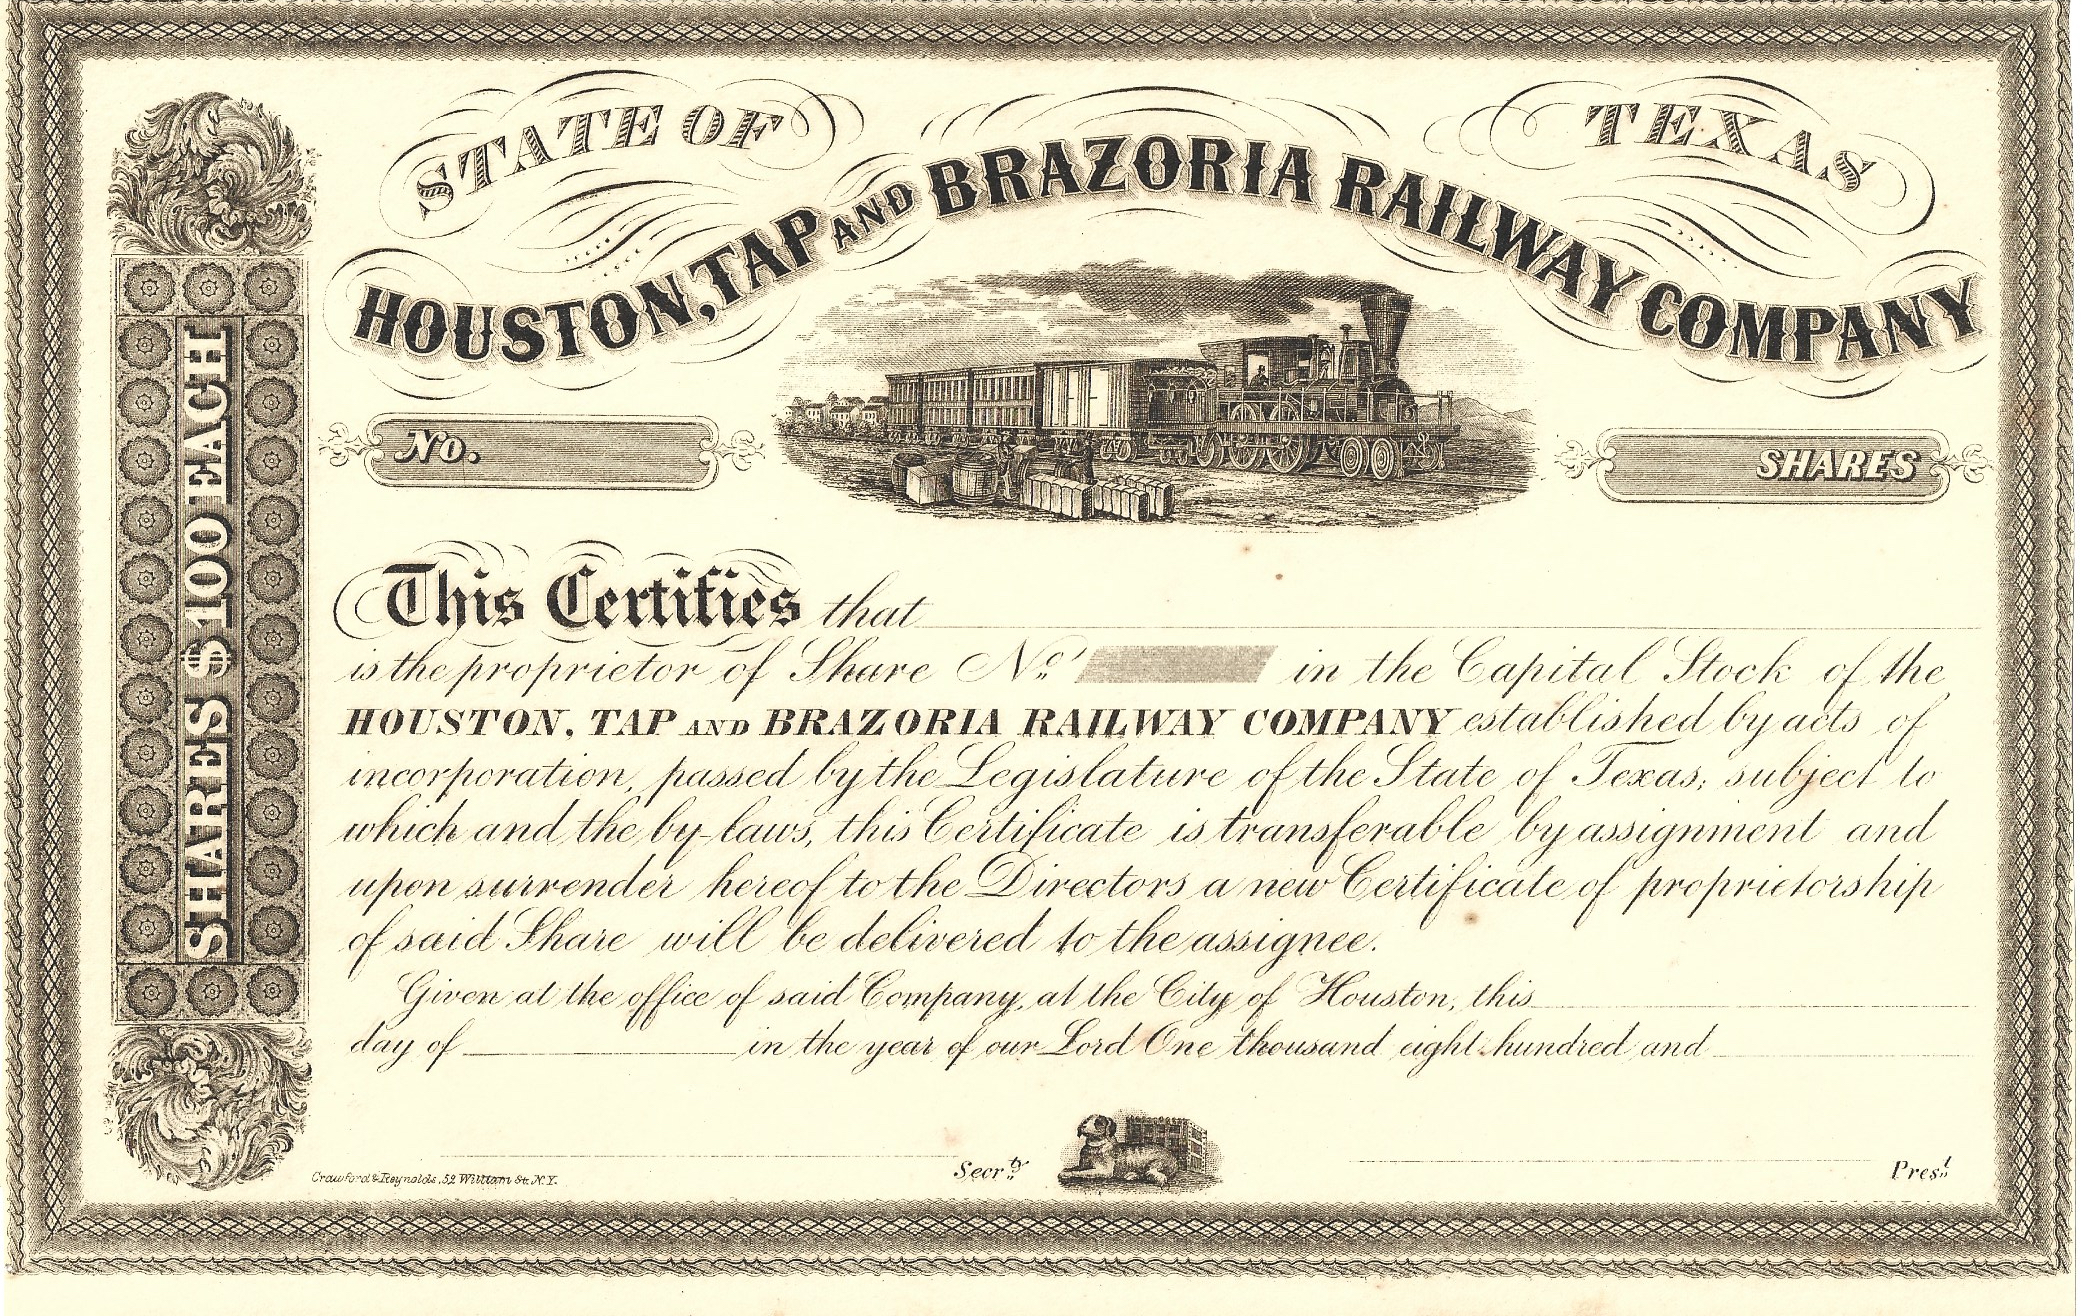 STATE OF TEXAS
HOUSTON, TAP AND BRAZORIA RAILWAY COMPANY
SHARES $100 EACH
No.
SHARES
This Certifies that
is the proprietor of Share No. in the Capital Stock of the
HOUSTON, TAP AND BRAZORIA RAILWAY COMPANY established by acts of
incorporation, passed by the Legislature of the State of Texas; subject to
which and the by-laws, this Certificate is transferable by assignment and
upon surrender hereof to the Directors a new Certificate of proprietorship
of said Share will be delivered to the assignee.
Given at the office of said Company, at the City of Houston, this
day of in the year of our Lord One thousand eight hundred and
Secr.ty
Pres.t
Crawford & Reynolds, 52 William St. N.Y.